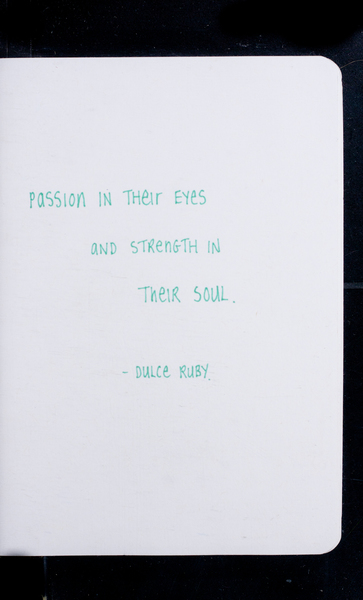 Passion in their eyes
and strength in
their soul.
- Dulce Ruby.